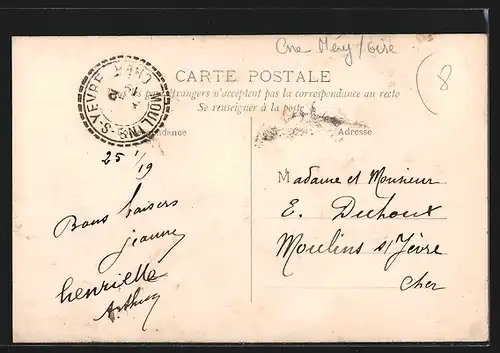 Cne Méry/Loire
8
CARTE POSTALE
pays étrangers n'acceptent pas la correspondance au recto
Se renseigner à la poste
MOULINS-S-YEVRE CHER
Correspondance
Adresse
25 1/19
Madame et Monsieur
E. Duhoux
Moulins s/ Yèvre
Cher
Bons baisers
jeanne
henriette
Arthur